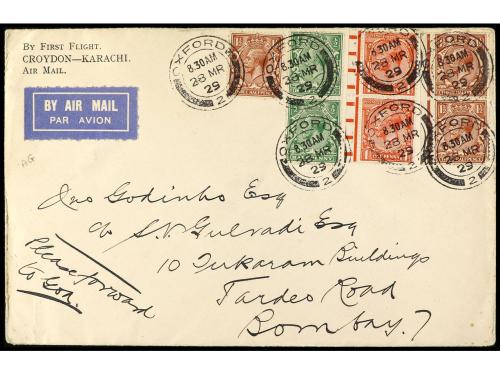 By First Flight.
CROYDON—KARACHI.
Air Mail.
BY AIR MAIL
PAR AVION
OXFORD
8.30AM
28 MR
29
2
OXFORD
8.30AM
28 MR
29
2
OXFORD
8.30AM
28 MR
29
2
OXFORD
8.30AM
28 MR
29
2
OXFORD
8.30AM
28 MR
29
2
OXFORD
8.30AM
28 MR
29
2
OXFORD
8.30AM
28 MR
29
2
AG
Godinho Esq
c/o S.V. Gulvadi Esq
10 Tukaram Buildings
Tardeo Road
Bombay. 7
Please forward
to Goa.